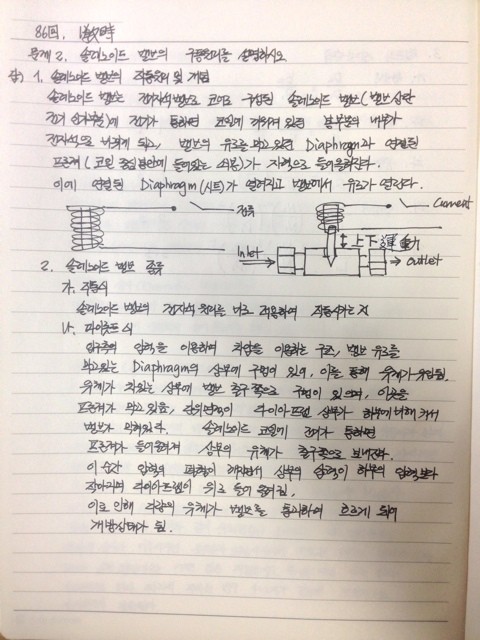 86회, 1교시
문제 2. 솔레노이드 밸브의 구동원리를 설명하시오.
답) 1. 솔레노이드 밸브의 작동원리 및 개념
솔레노이드 밸브는 전자석 밸브로 코어로 구성된 솔레노이드 밸브(밸브 상단
전기 인가부분)에 전기가 통하면 코일에 감겨져 있던 봉부분의 내부가
전자석으로 바뀌게 되고, 밸브의 유로를 막고 있던 Diaphragm과 연결된
프론져(코일 중심부안에 들어있는 쇠봉)가 자력으로 들어올려진다.
이에 연결된 Diaphragm(시트)가 열려지고 밸브에서 유로가 열린다.
전류
Current
上下運動
Inlet
Outlet
2. 솔레노이드 밸브 종류
가. 직동식
솔레노이드 밸브의 전자석 원리를 바로 적용하여 작동시키는 것
나. 파이롯트식
압축측의 압력을 이용하여 차압을 이용하는 구조, 밸브 유로를
막고있는 Diaphragm의 상부에 구멍이 있어, 이를 통해 유체가 유입됨.
유체가 차있는 상부에 밸브 출구쪽으로 구멍이 있으며, 이곳을
프론져가 막고 있음, 단위면적이 다이아프램 상부가 하부에 비해 커서
밸브가 닫혀있다. 솔레노이드 코일에 전기가 통하면
프론져가 들어올려져 상부의 유체가 출구쪽으로 보내진다.
이 순간 압력의 평형이 깨져서 상부의 압력이 하부의 압력보다
작아지며 다이아프램이 위로 들어 올려짐,
이로 인해 다량의 유체가 밸브를 통과하여 흐르게 되어
개방상태가 됨.